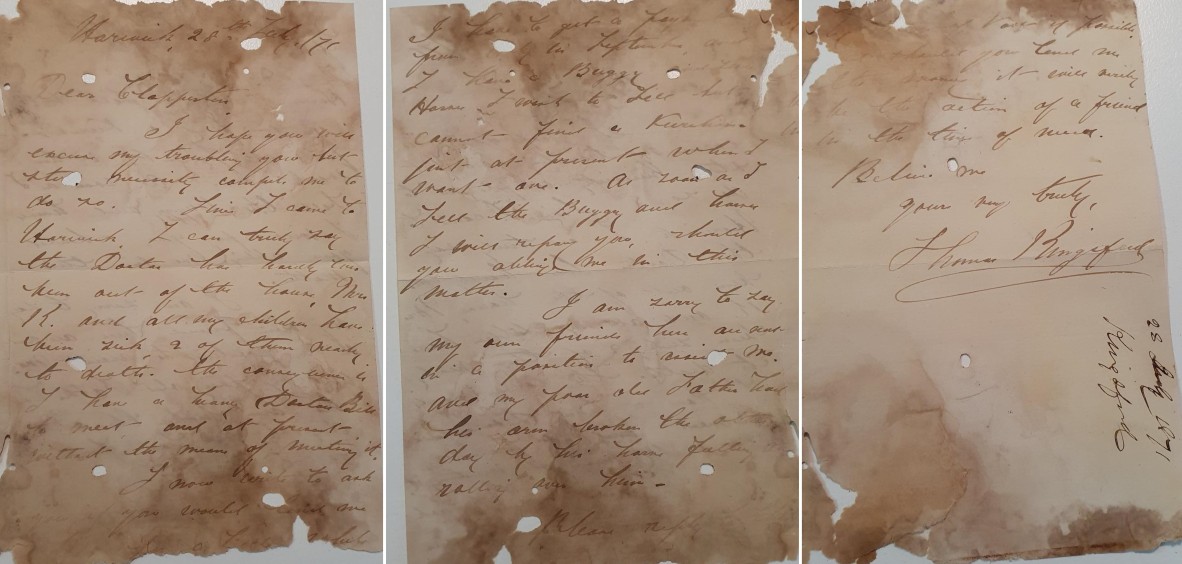 Dear Clapperton
I hope you will
excuse my troubling you but
necessity compels me to
do so. Since I came to
Warwick, I can truly say
the Doctor has hardly ever
been out of the house, Mrs
R. and all my children have
been sick, 2 of them nearly
to death. the consequence is
I have a heavy Doctors Bill
to meet and at present
without the means of meeting it
I now write to ask
you would lend me
I have to get a
from in September
I have a Buggy
Horse I wish to sell but
cannot find a Purchaser
just at present when I
want one. As soon as I
sell the Buggy and horse
I will repay you, should
you oblige me in this
matter.
I am sorry to say
my own friends here are not
in a position to assist me.
and my poor old Father had
his arm broken the other
day by his horse falling
rolling over him -
Please reply
if possible
should you lend me
it will verily
be the action of a friend
in the time of need.
Believe me
yours very truly,
Thomas Ringsford